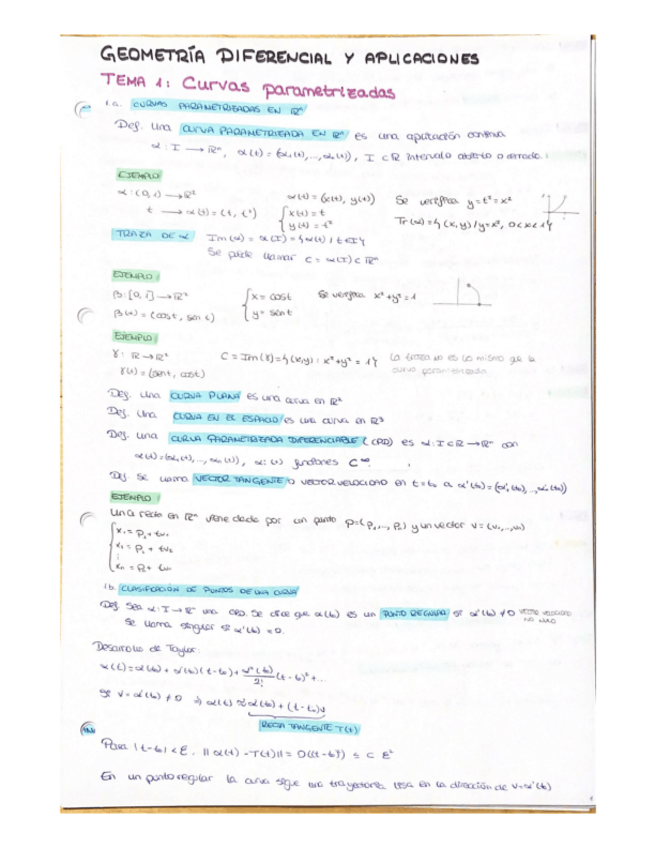 GEOMETRÍA DIFERENCIAL Y APLICACIONES
TEMA 1: Curvas parametrizadas
1.a. CURVAS PARAMETRIZADAS EN ℝⁿ
Def. Una CURVA PARAMETRIZADA EN ℝⁿ es una aplicación continua
α: I → ℝⁿ, α(t) = (α₁(t),..., αₙ(t)), I ⊂ ℝ intervalo abierto o cerrado.
EJEMPLO
α: (0,1) → ℝ² α(t) = (x(t), y(t)) Se verifica y=t²=x²
t → α(t) = (t, t²) { x(t) = t
y(t) = t² Tr(α) = {(x,y) / y=x², 0<x<1}
TRAZA DE α Im(α) = α(I) = {α(t) / t∈I}
Se puede llamar C = α(I) ⊂ ℝⁿ
EJEMPLO
β: [0,1] → ℝ² { x = cost Se verifica x²+y²=1
β(t) = (cost, sent) y = sent
EJEMPLO
γ: ℝ → ℝ² C = Im(γ) = {(x,y): x²+y² = 1} La traza no es lo mismo que la
γ(t) = (sent, cost) curva parametrizada.
Def. Una CURVA PLANA es una curva en ℝ²
Def. Una CURVA EN EL ESPACIO es una curva en ℝ³
Def. Una CURVA PARAMETRIZADA DIFERENCIABLE (CPD) es α: I⊂ℝ → ℝⁿ con
α(t) = (α₁(t),..., αₙ(t)), αᵢ(t) funciones C^∞.
Def Se llama VECTOR TANGENTE O VECTOR VELOCIDAD en t=t₀ a α'(t₀) = (α₁'(t₀),..., αₙ'(t₀))
EJEMPLO
Una recta en ℝⁿ viene dada por un punto p=(p₁,..., pₙ) y un vector v = (v₁,...,vₙ)
{ x₁ = p₁ + tv₁
x₂ = p₂ + tv₂
⋮
xₙ = pₙ + tvₙ
1.b. CLASIFICACIÓN DE PUNTOS DE UNA CURVA
Def. Sea α: I → ℝⁿ una CPD. Se dice que α(t₀) es un PUNTO REGULAR si α'(t₀) ≠ 0 VECTOR VELOCIDAD
NO NULO
Se llama singular si α'(t₀) = 0.
Desarrollo de Taylor:
α(t) = α(t₀) + α'(t₀)(t-t₀) + α''(t₀)/2! (t-t₀)² + ...
Si v = α'(t₀) ≠ 0 ⇒ α(t) ≈ α(t₀) + (t-t₀)v
RECTA TANGENTE T(t)
Para |t-t₀| < ε, ||α(t) - T(t)|| = O((t-t₀)²) ≤ C ε²
En un punto regular la curva sigue una trayectoria lisa en la dirección de v=α'(t₀)